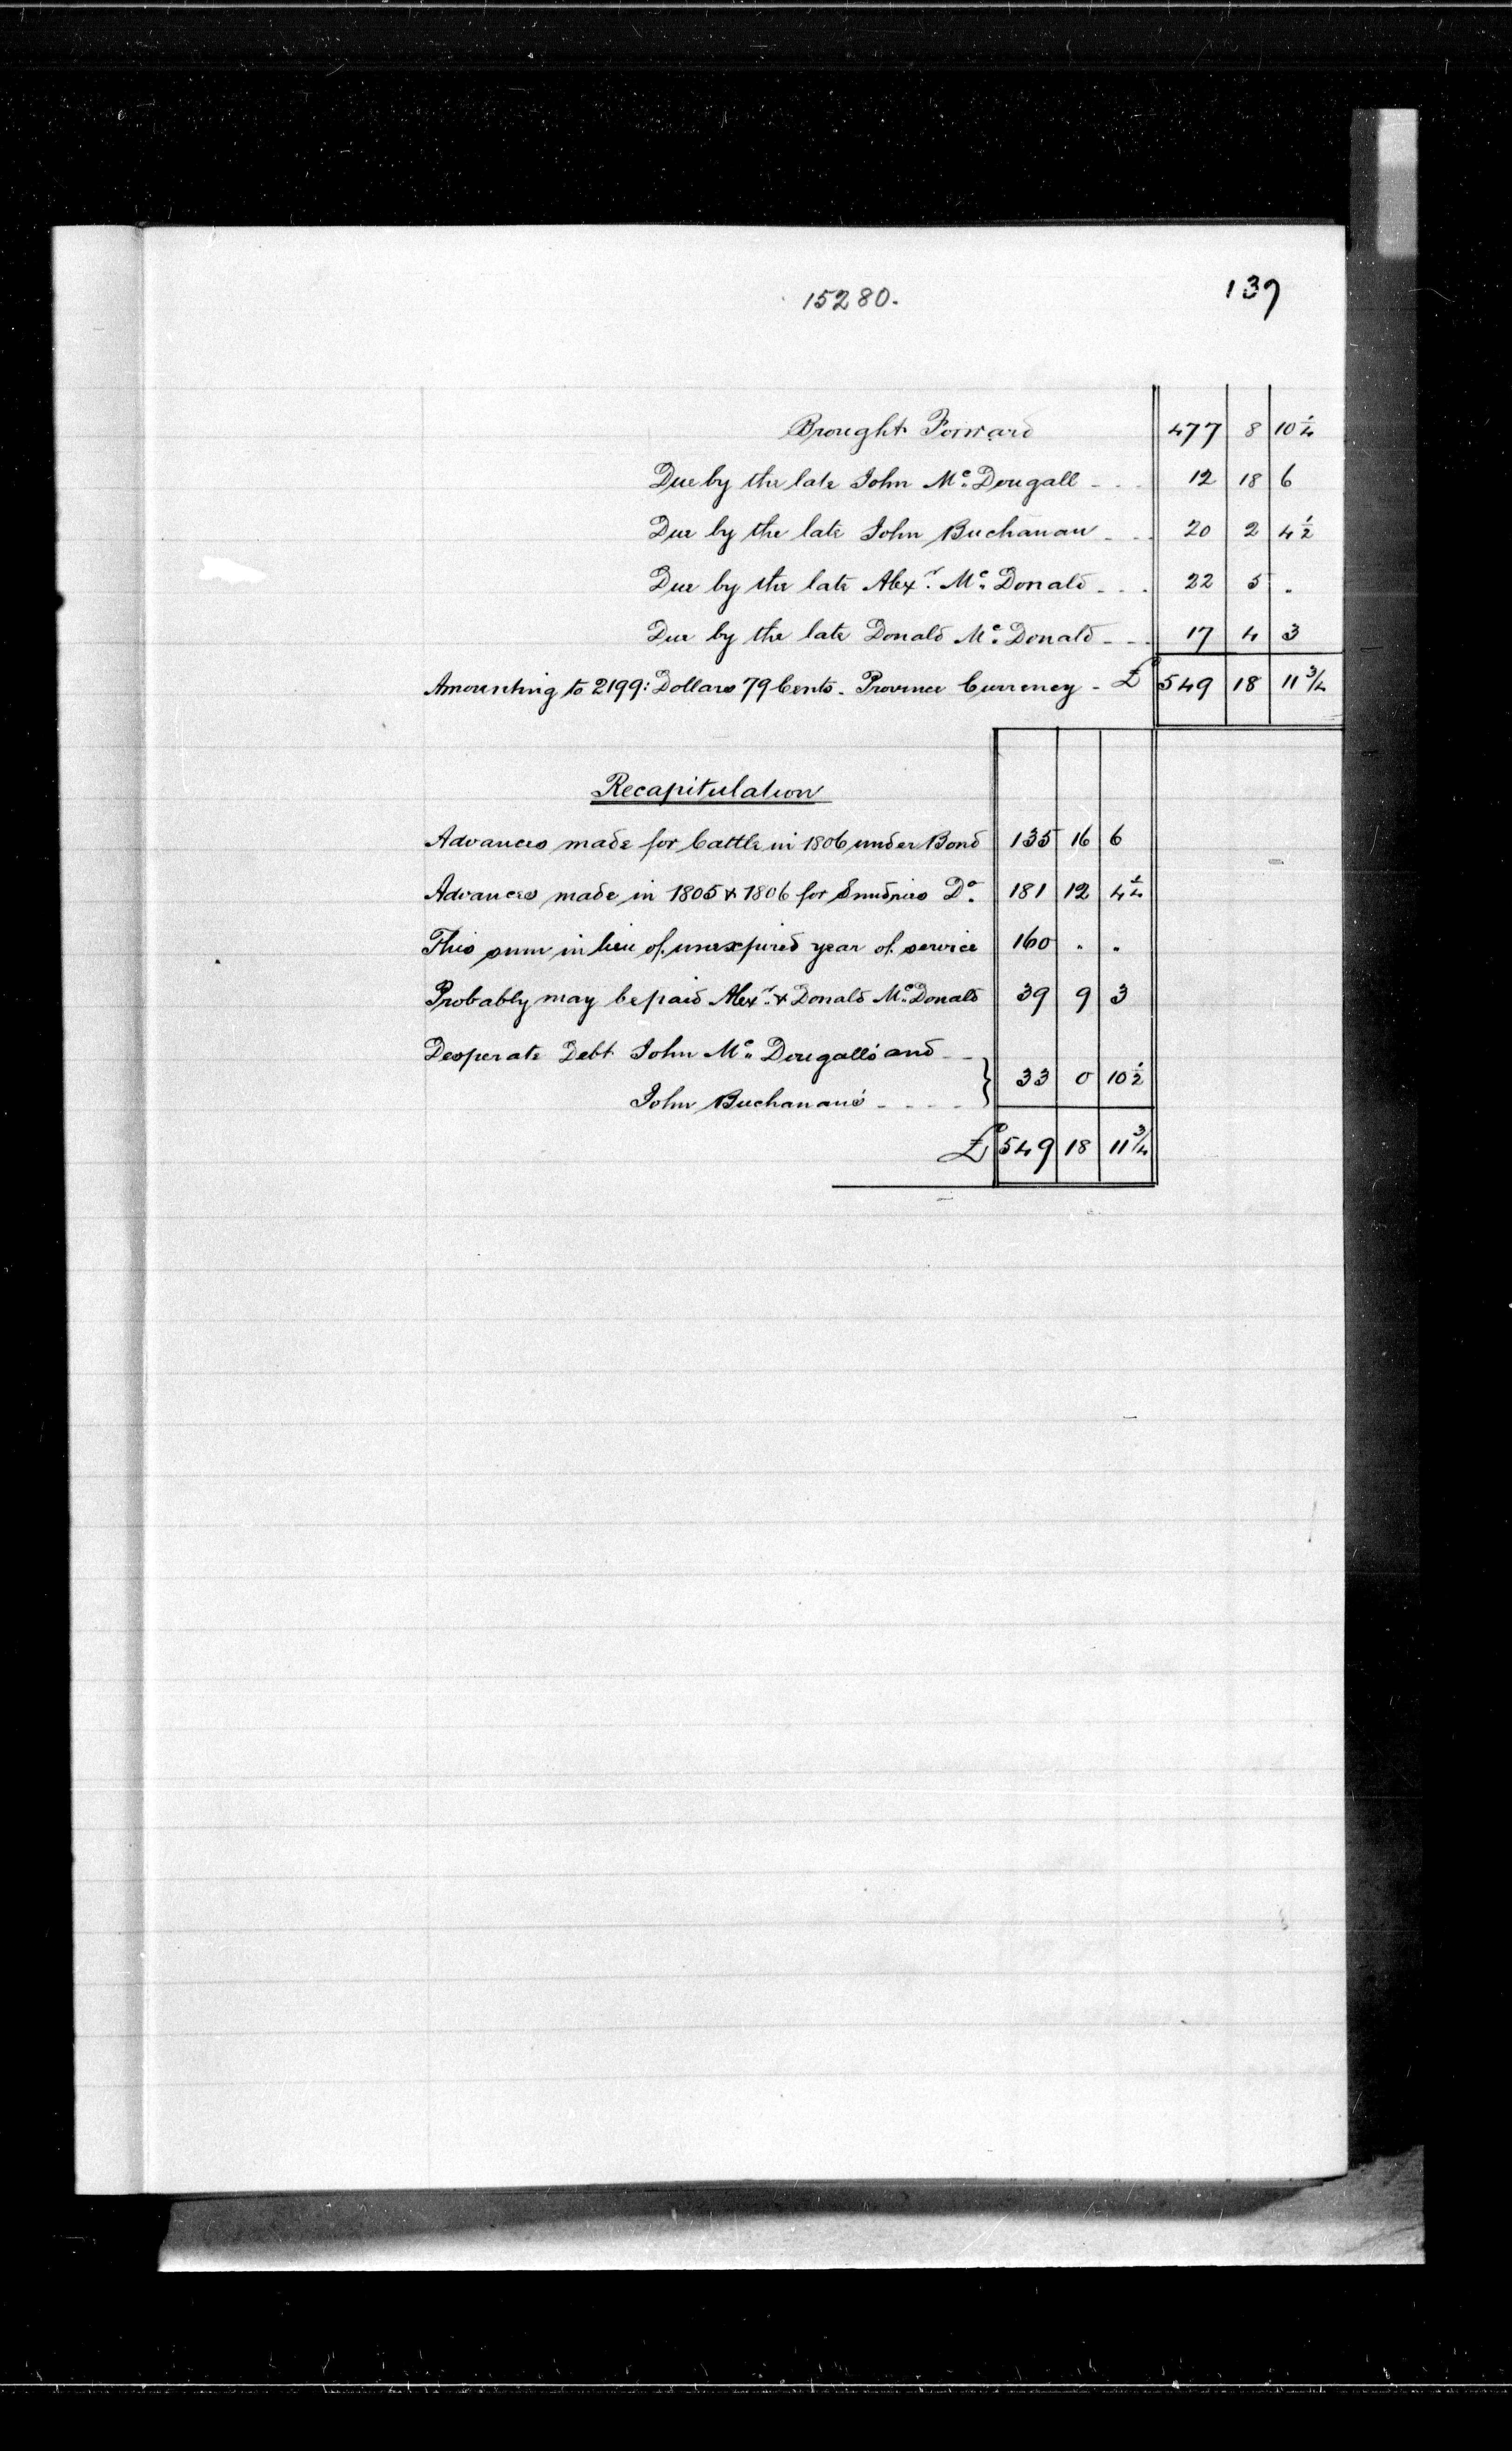 15280.
139
Brought Forward 477 8 10 1/4
Due by the late John Mc. Dougall - - - 12 18 6
Due by the late John Buchanan - - - 20 2 4 1/2
Due by the late Alexr. Mc. Donald - - - 22 5 .
Due by the late Donald Mc. Donald - - - 17 4 3
Amounting to 2199: Dollars 79 Cents - Province Currency - £ 549 18 11 3/4
Recapitulation
Advances made for Cattle in 1806 under Bond 135 16 6
Advances made in 1805 & 1806 for Sundries Do. 181 12 4 1/4
This sum in lieu of unexpired year of service 160 . .
Probably may be paid Alexr. & Donald Mc. Donald 39 9 3
Desperate Debt John Mc. Dougall's and - -
John Buchanan's - - - - } 33 0 10 1/2
£ 549 18 11 3/4